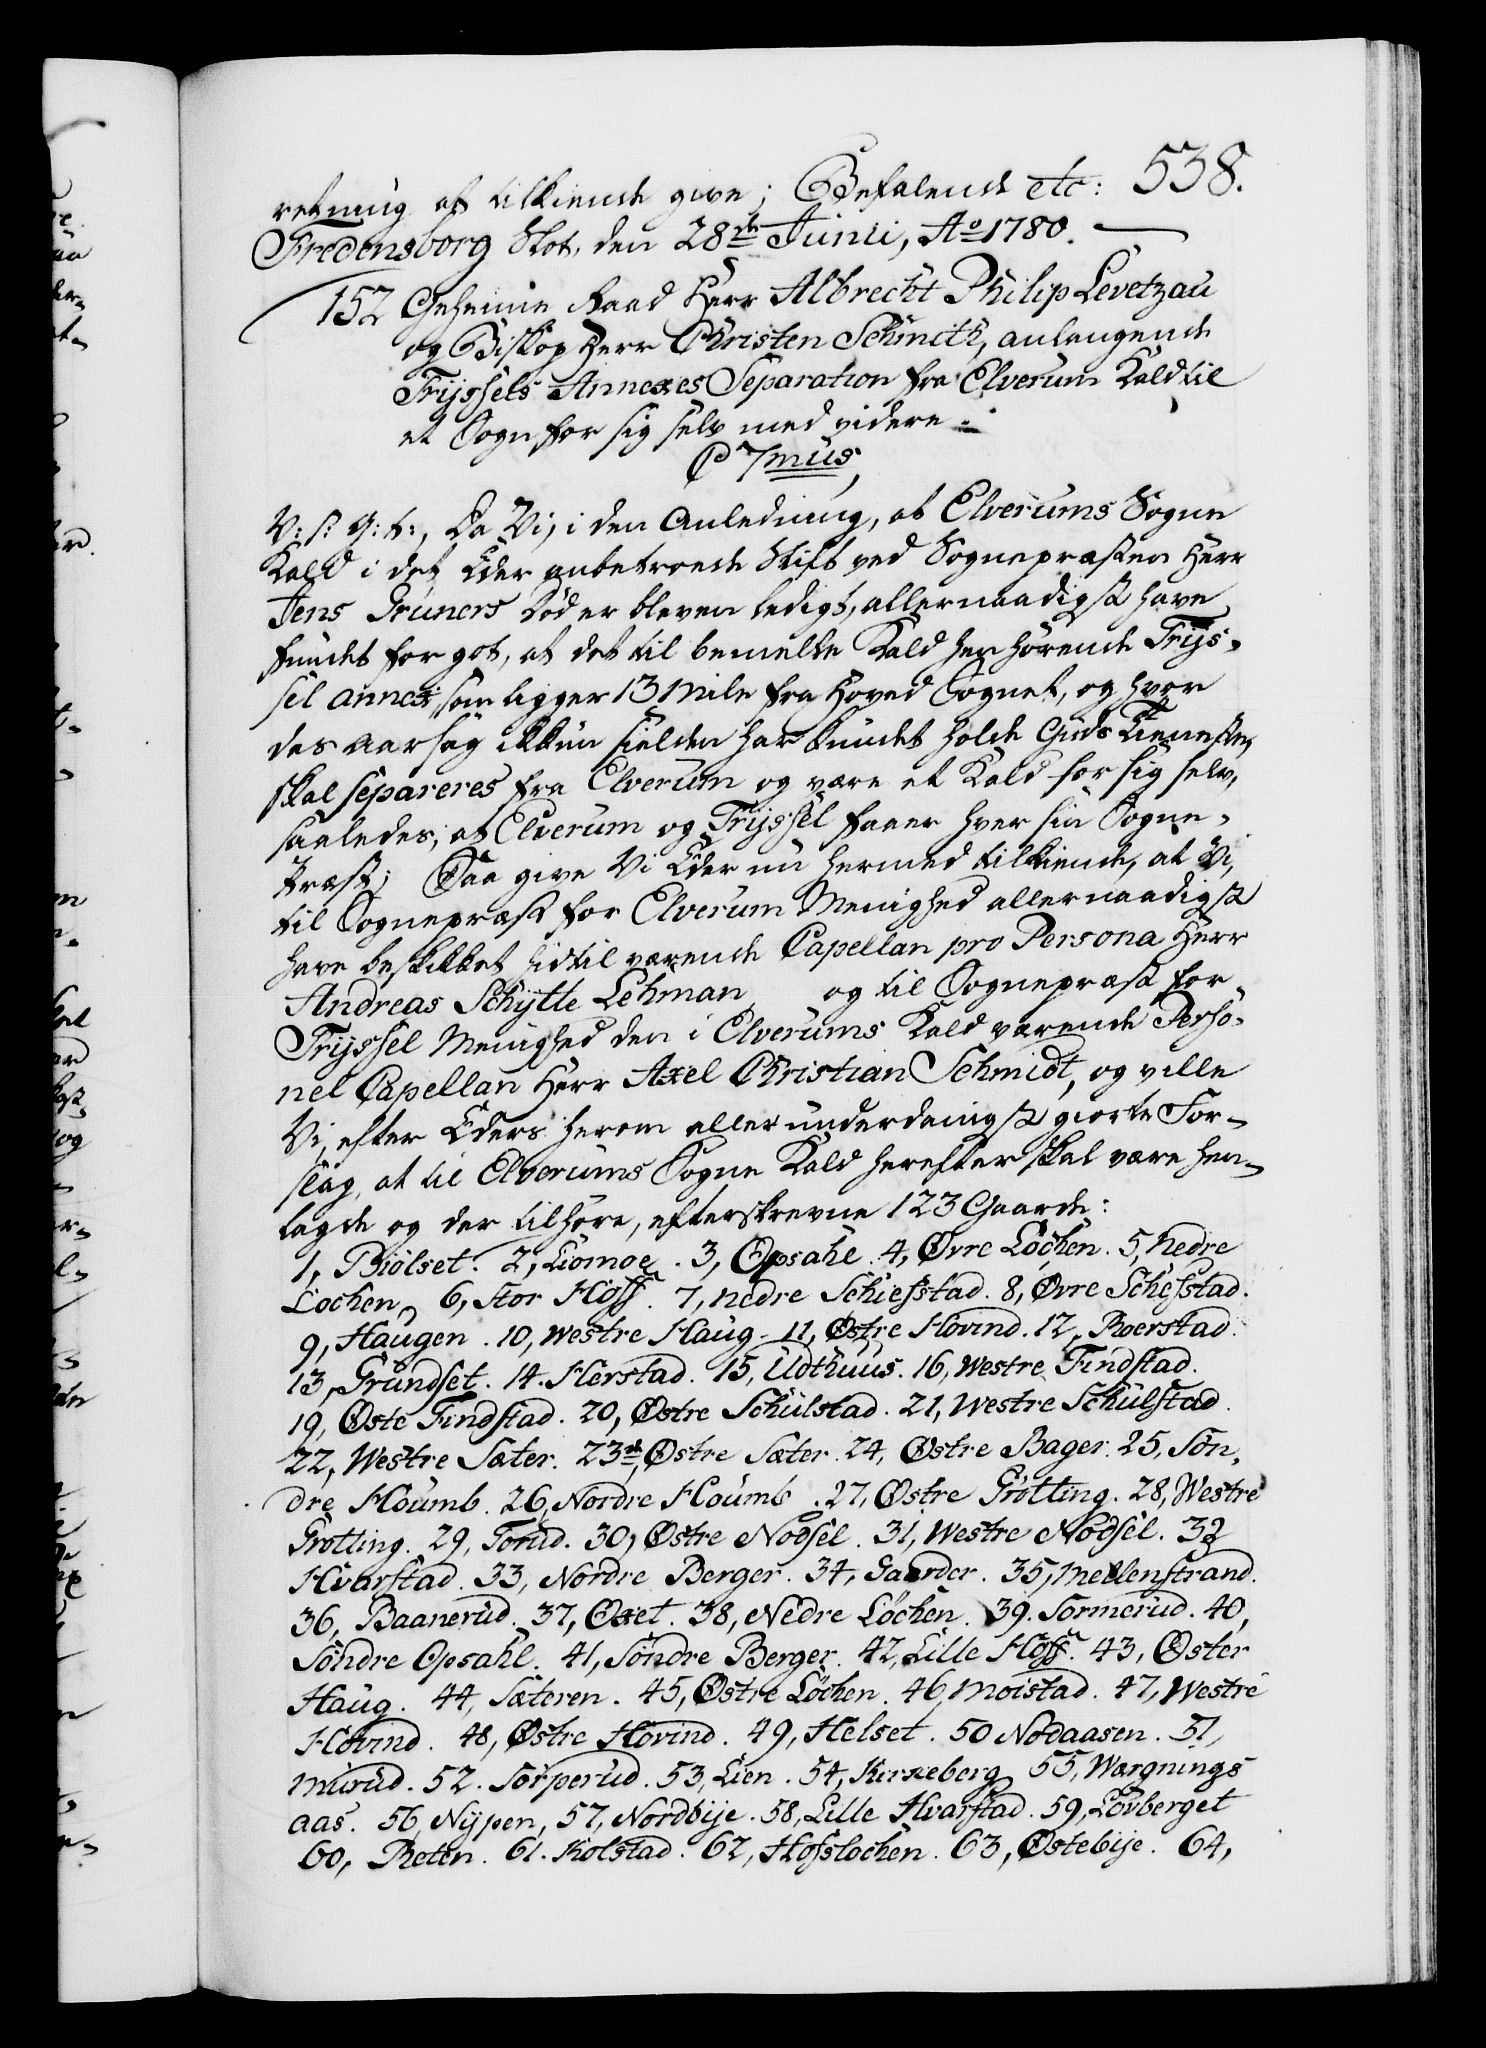 retning at tilkiende give; Befalende etc: 538.
Fredensborg Slot, den 28de Junii, Ao 1780.
152 Geheime Raad Herr Albrecht Philip Levetzau
og Biskop Herr Christen Schmith, anlangende
Trijssels Annexes Separation fra Elverum Kald til
et Sogn for sig selv med videre.
C 7mus,
V: S: G: t:, Da Vi, i den Anledning, at Elverums Sogne
Kald i det Eder anbetroede Stift ved Sognepræsten Herr
Jens Gruners Død er bleven ledigt, allernaadigst have
fundet for got, at det til bemelte Kald henhørende Trijs-
sel annex, som ligger 13 Mile fra Hoved Sognet, og hvor
des aarsag ikkun sielden har kundet holde Guds Tieneste,
skal separeres fra Elverum og være et Kald for sig selv,
saaledes, at Elverum og Trijssel faaer hver sin Sogne-
Præst; Saa give Vi Eder nu hermed tilkiende, at Vi,
til Sognepræst for Elverum Menighed allernaadigst
have beskikket hidtil værende Capellan pro Persona Herr
Andreas Schytte Lehman, og til Sognepræst for
Trijssel Menighed den i Elverums Kald værende Perso-
nel Capellan Herr Axel Christian Schmidt, og ville
Vi, efter Eders herom allerunderdanigst giorte For-
slag, at til Elverums Sogne Kald herefter skal være hen-
lagde og der tilhøre, efterskrevne 123 Gaarde:
1, Biölset. 2, Liomoe. 3, Opsahl. 4, Øvre Löchen. 5, Nedre
Lochen, 6, Stor Hoff. 7, nedre Schiefstad. 8, Øvre Schefstad.
9, Haugen. 10, Westre Haug. 11, Østre Hovind. 12, Roerstad.
13, Grundset. 14. Herstad. 15, Udthuus. 16, Westre Findstad.
19, Øste Findstad. 20, Østre Schulstad. 21, Westre Schulstad.
22, Westre Sæter. 23de, Østre Sæter. 24, Østre Bager. 25, Søn-
dre Houmb. 26, Nordre Houmb. 27, Østre Grötting. 28, Westre
Grötting. 29, Torud. 30, Østre Nodsel. 31, Westre Nodsel. 32
Hvarstad. 33, Nordre Berger. 34, Gaarder. 35, Mellenstrand.
36, Baanerud. 37, Oxet. 38, Nedre Löchen. 39. Sormerud. 40,
Söndre Opsahl. 41, Söndre Berger. 42, Lille Hoff. 43, Øster
Haug. 44, Sæteren. 45, Østre Löchen. 46, Moistad. 47, Westre
Hovind. 48, Østre Hovind. 49, Helset. 50 Nodaasen. 51,
Murud. 52. Sörperud. 53, Lien. 54, Kirkeberg, 55, Wærgnings
aas. 56, Nijpen, 57, Nordbije. 58, Lille Hvarstad. 59, Lövberget
60, Roten. 61. Kolstad. 62, Hofslochen. 63, Østebije. 64,